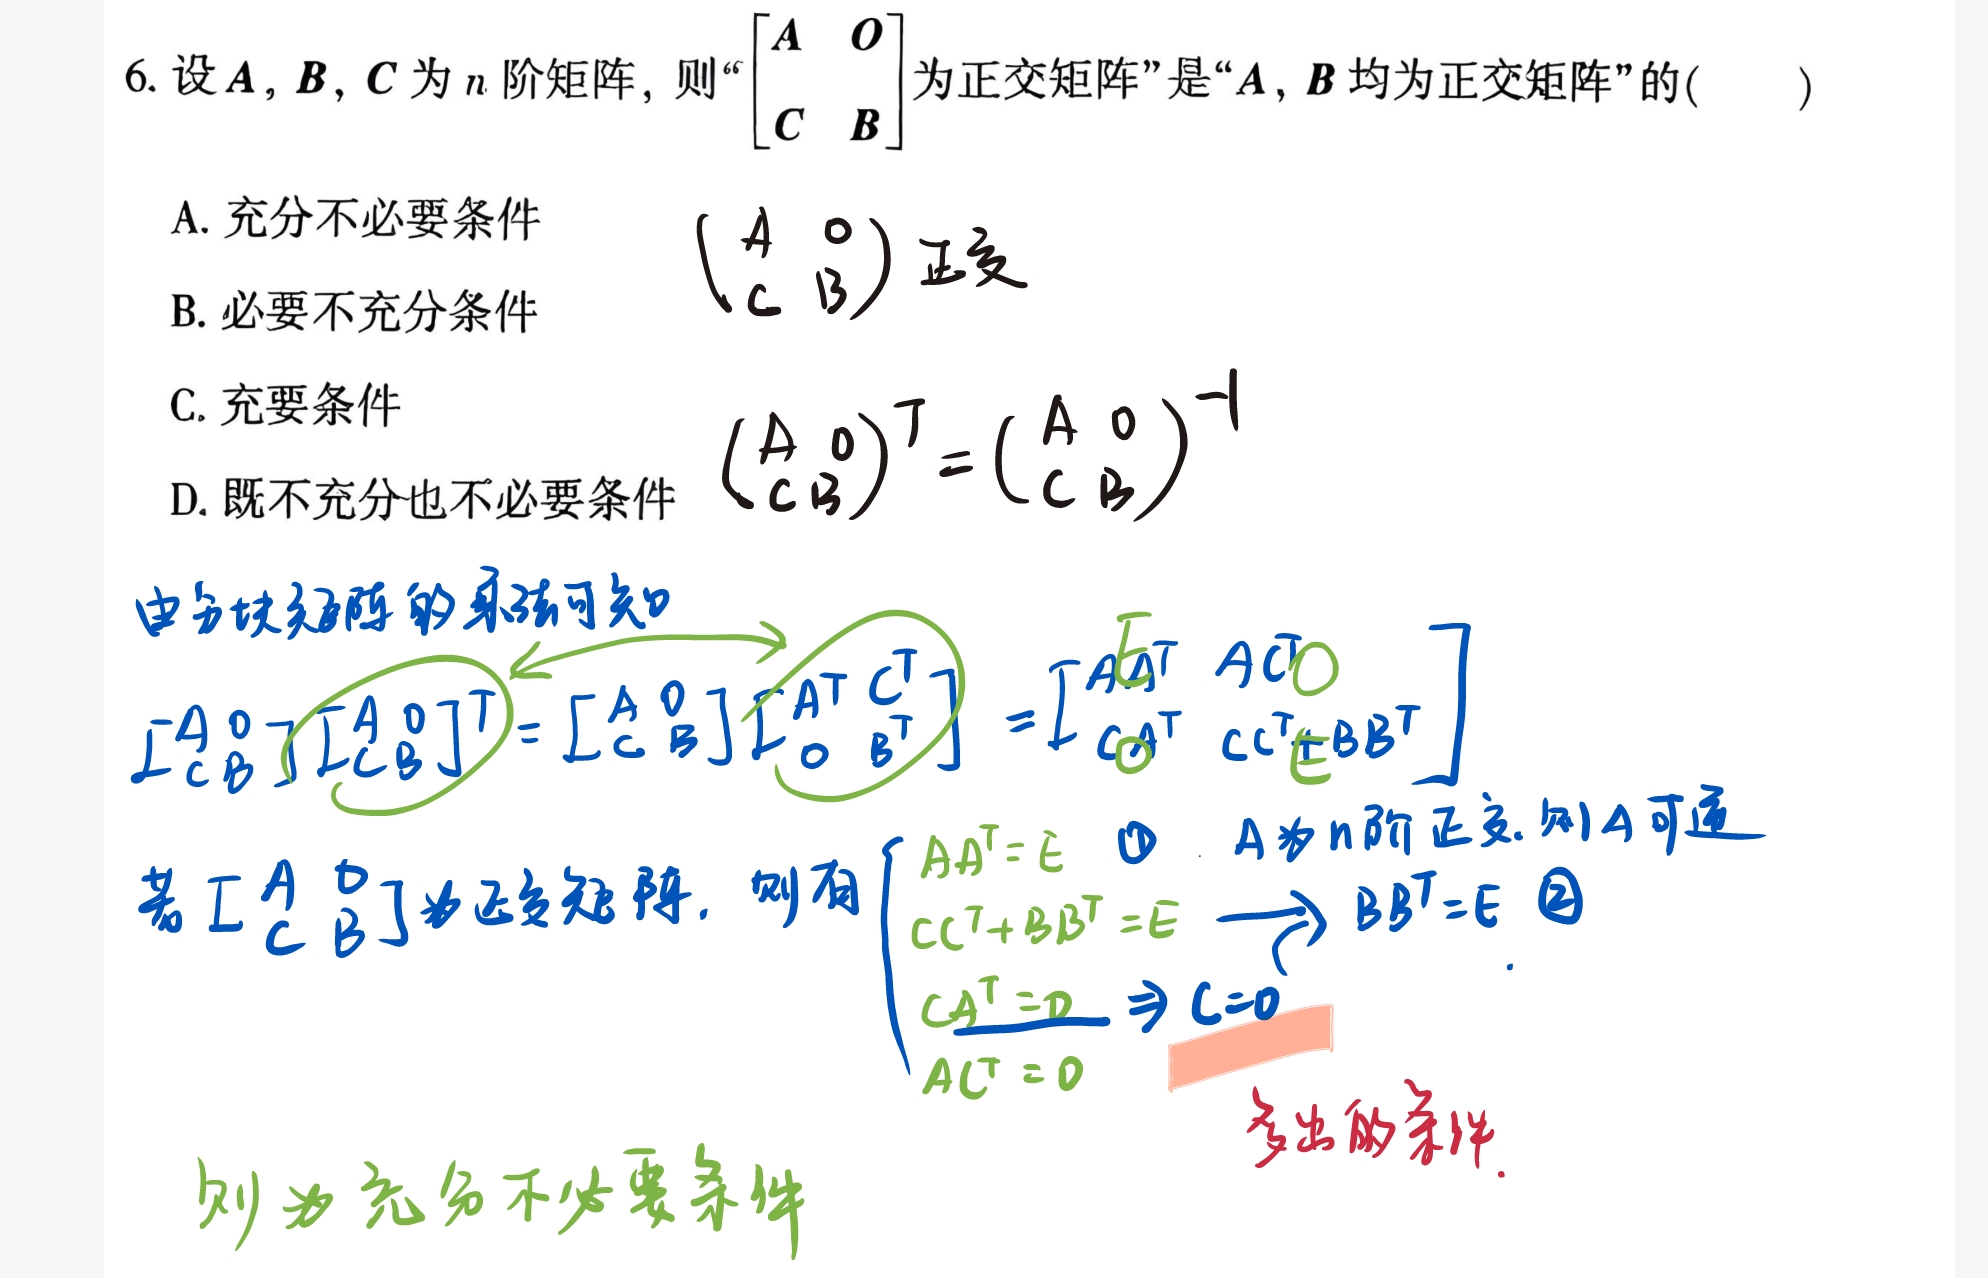 6. 设 A, B, C 为 n 阶矩阵, 则“[A O; C B]为正交矩阵”是“A, B 均为正交矩阵”的( )
A. 充分不必要条件
B. 必要不充分条件
C. 充要条件
D. 既不充分也不必要条件
(A 0; C B) 正交
(A 0; C B)^T = (A 0; C B)^-1
由分块矩阵的乘法可知
[A 0; C B][A 0; C B]^T = [A 0; C B][A^T C^T; 0 B^T] = [AA^T AC^T; CA^T CC^T+BB^T]
E O
O E
若[A 0; C B]为正交矩阵, 则有
AA^T=E ① A为n阶正交, 则A可逆
CC^T+BB^T=E → BB^T=E ②
CA^T=0 ⇒ C=0
AC^T=0
多出的条件.
则为充分不必要条件